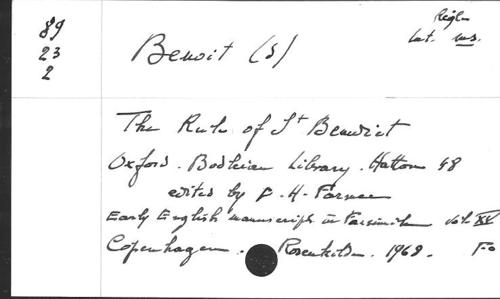 89
23
2
Règle
lat. ms.
Benoit (S)
The Rule of St Benedict
Oxford. Bodleian Library. Hatton 48
edited by D. H. Farmer
Early English manuscripts in Facsimile vol. XV
Copenhagen. Rosenkilde. 1968. Fo